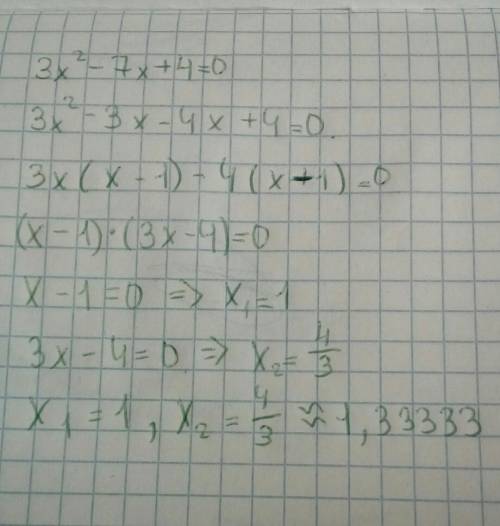 3x² - 7x + 4 = 0
3x² - 3x - 4x + 4 = 0.
3x(x - 1) - 4(x - 1) = 0
(x - 1)·(3x - 4) = 0
x - 1 = 0 => x₁ = 1
3x - 4 = 0 => x₂ = 4/3
x₁ = 1, x₂ = 4/3 ≈ 1,33333